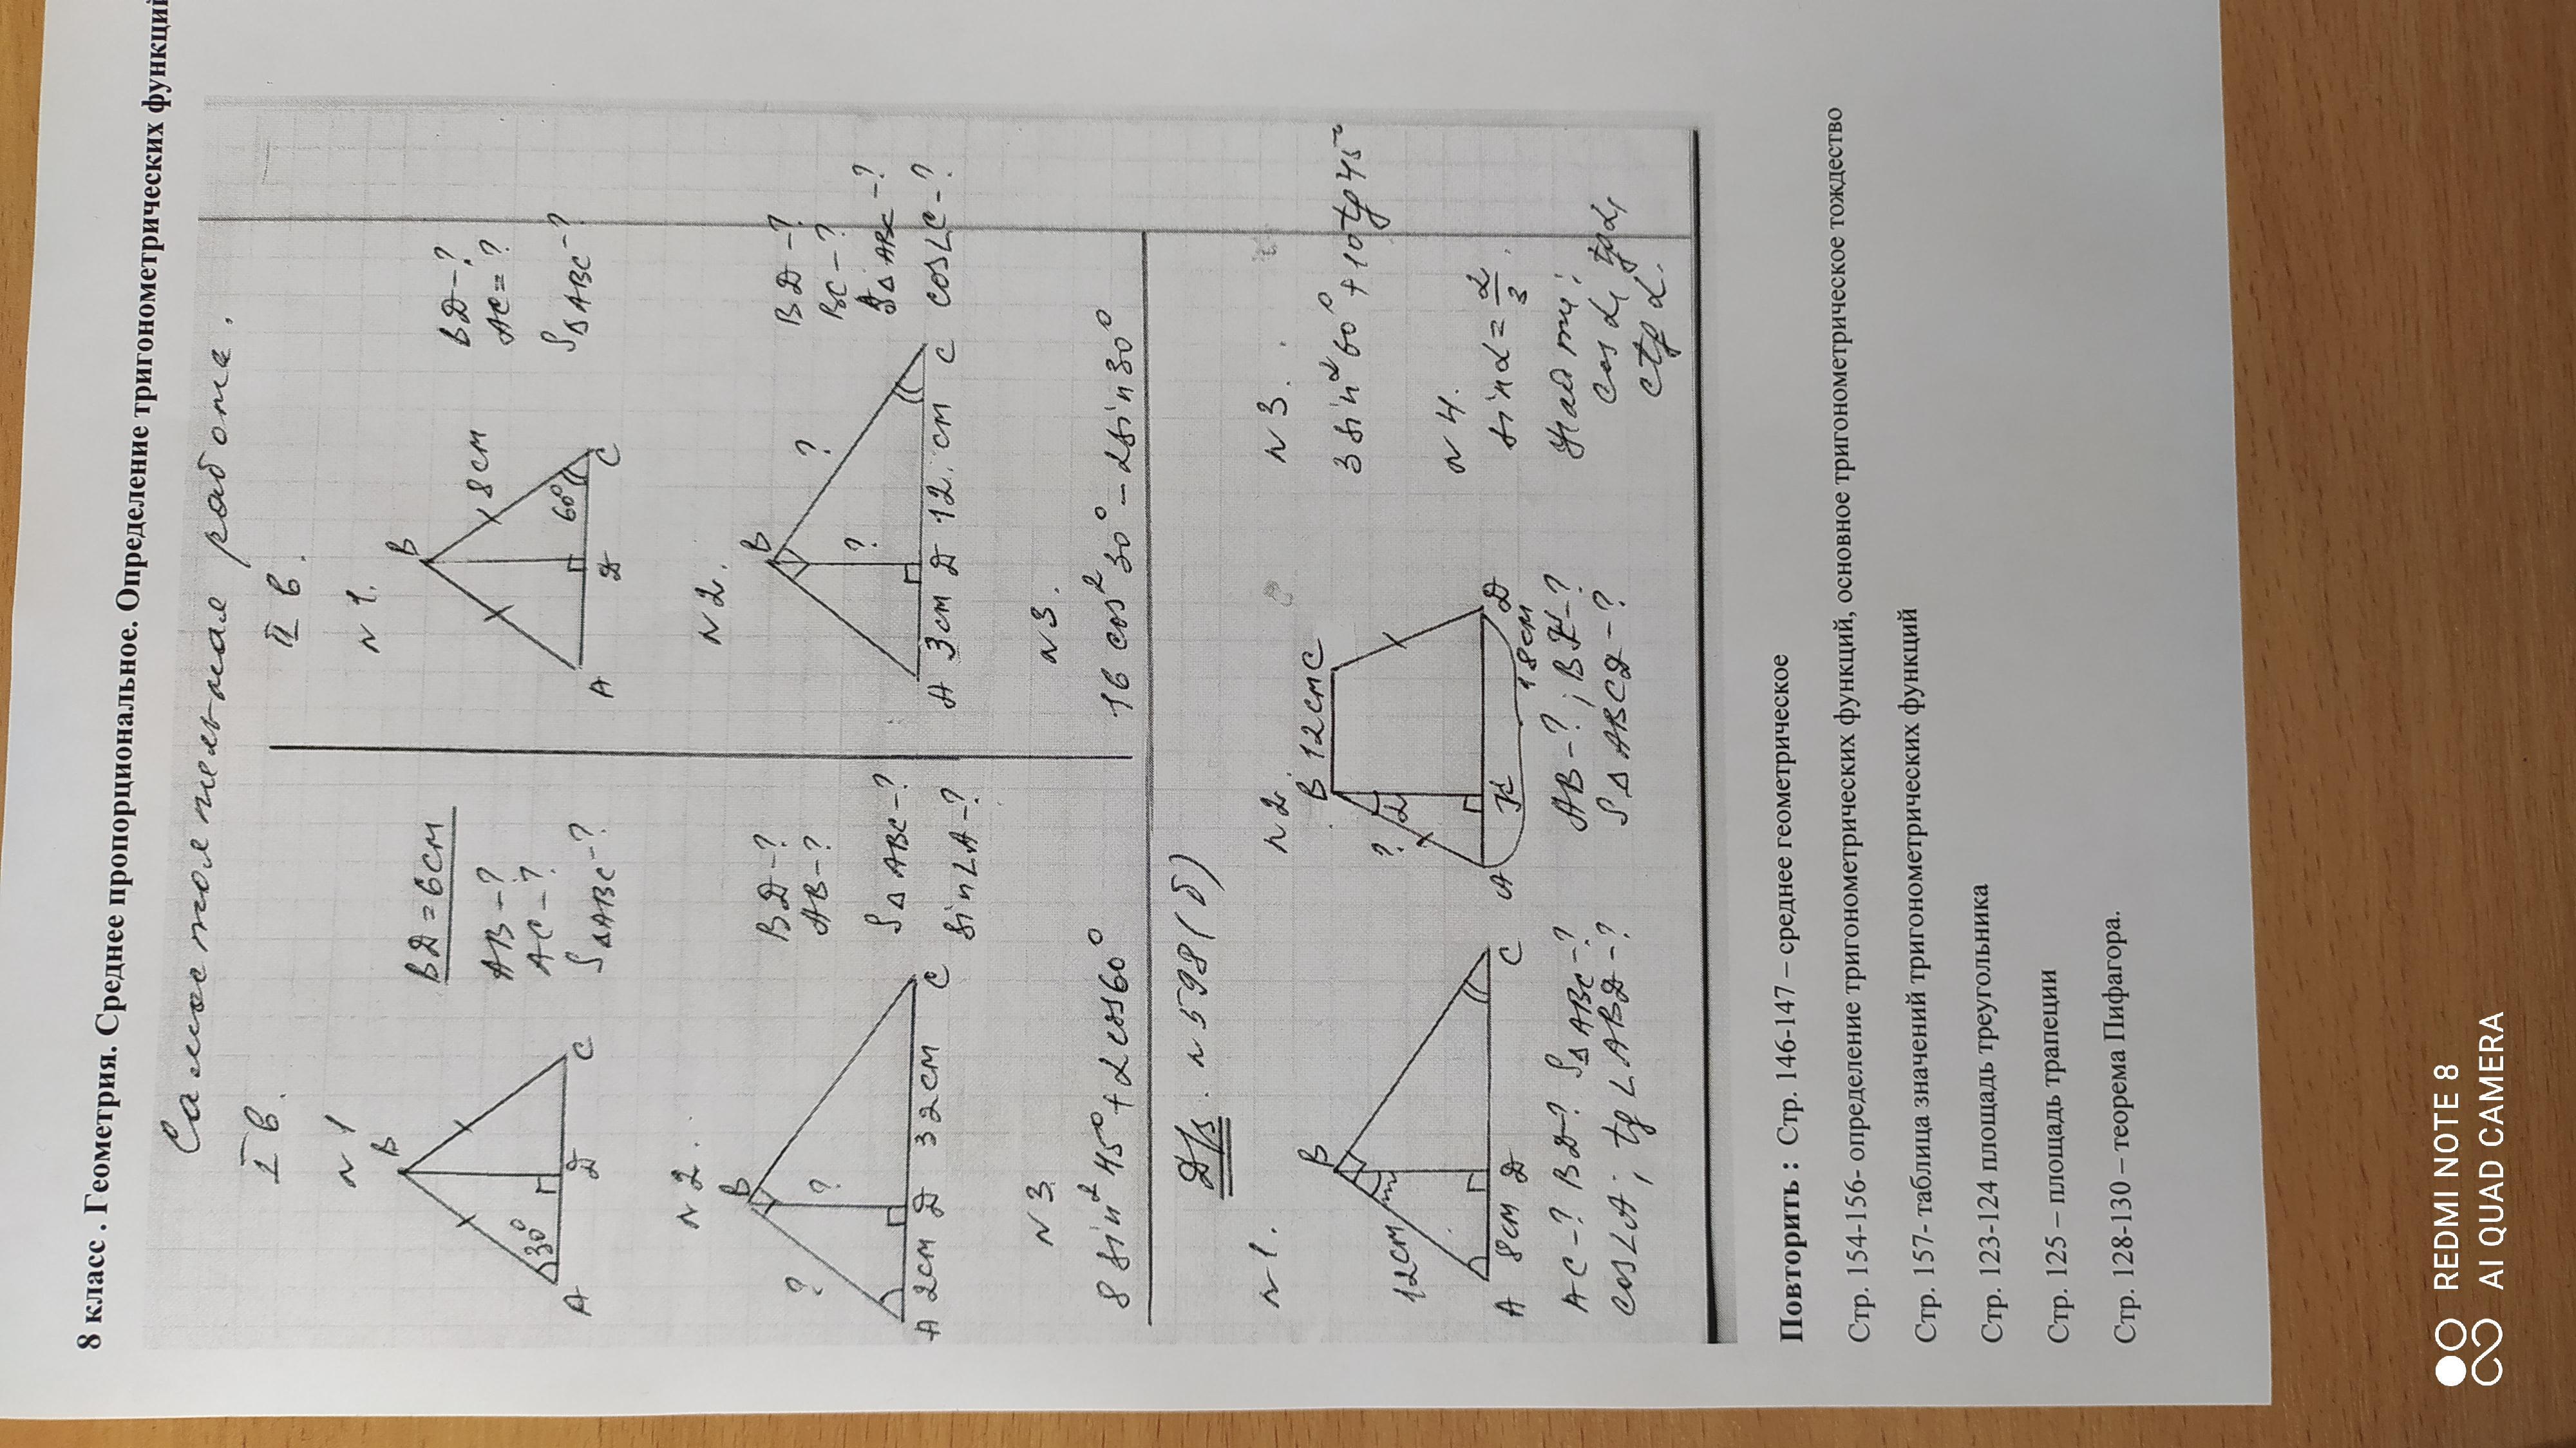 8 класс . Геометрия. Среднее пропорциональное. Определение тригонометрических функций
Самостоятельная работа.
I в.
N 1
B
30°
A
D
C
BD = 6 см
AB - ?
AC - ?
S△ABC - ?
N 2.
B
?
?
A 2см D 32см C
BD - ?
AB - ?
S△ABC - ?
sin∠A - ?
N 3
8 sin² 45° + 2 cos60°
II в.
N 1.
B
8 см
60°
A
D
C
BD - ?
AC = ?
S△ABC - ?
N 2.
B
?
?
A 3см D 12. см C
BD - ?
BC - ?
S△ABC - ?
cos∠C - ?
N 3.
16 cos² 30° - 2sin30°
Д/з. N 598(б)
N 1.
B
12см
A 8см D C
AC - ? BD - ? S△ABC - ?
cos∠A; tg∠ABD - ?
N 2.
B 12см C
?
A K D
18см
AB - ?; BK - ?
S△ABCD - ?
N 3.
3 sin² 60° + 10tg45°
N 4.
sin α = 2/3.
Найти:
cos α, tg α,
ctg α.
Повторить : Стр. 146-147 – среднее геометрическое
Стр. 154-156- определение тригонометрических функций, основное тригонометрическое тождество
Стр. 157- таблица значений тригонометрических функций
Стр. 123-124 площадь треугольника
Стр. 125 – площадь трапеции
Стр. 128-130 – теорема Пифагора.
REDMI NOTE 8
AI QUAD CAMERA